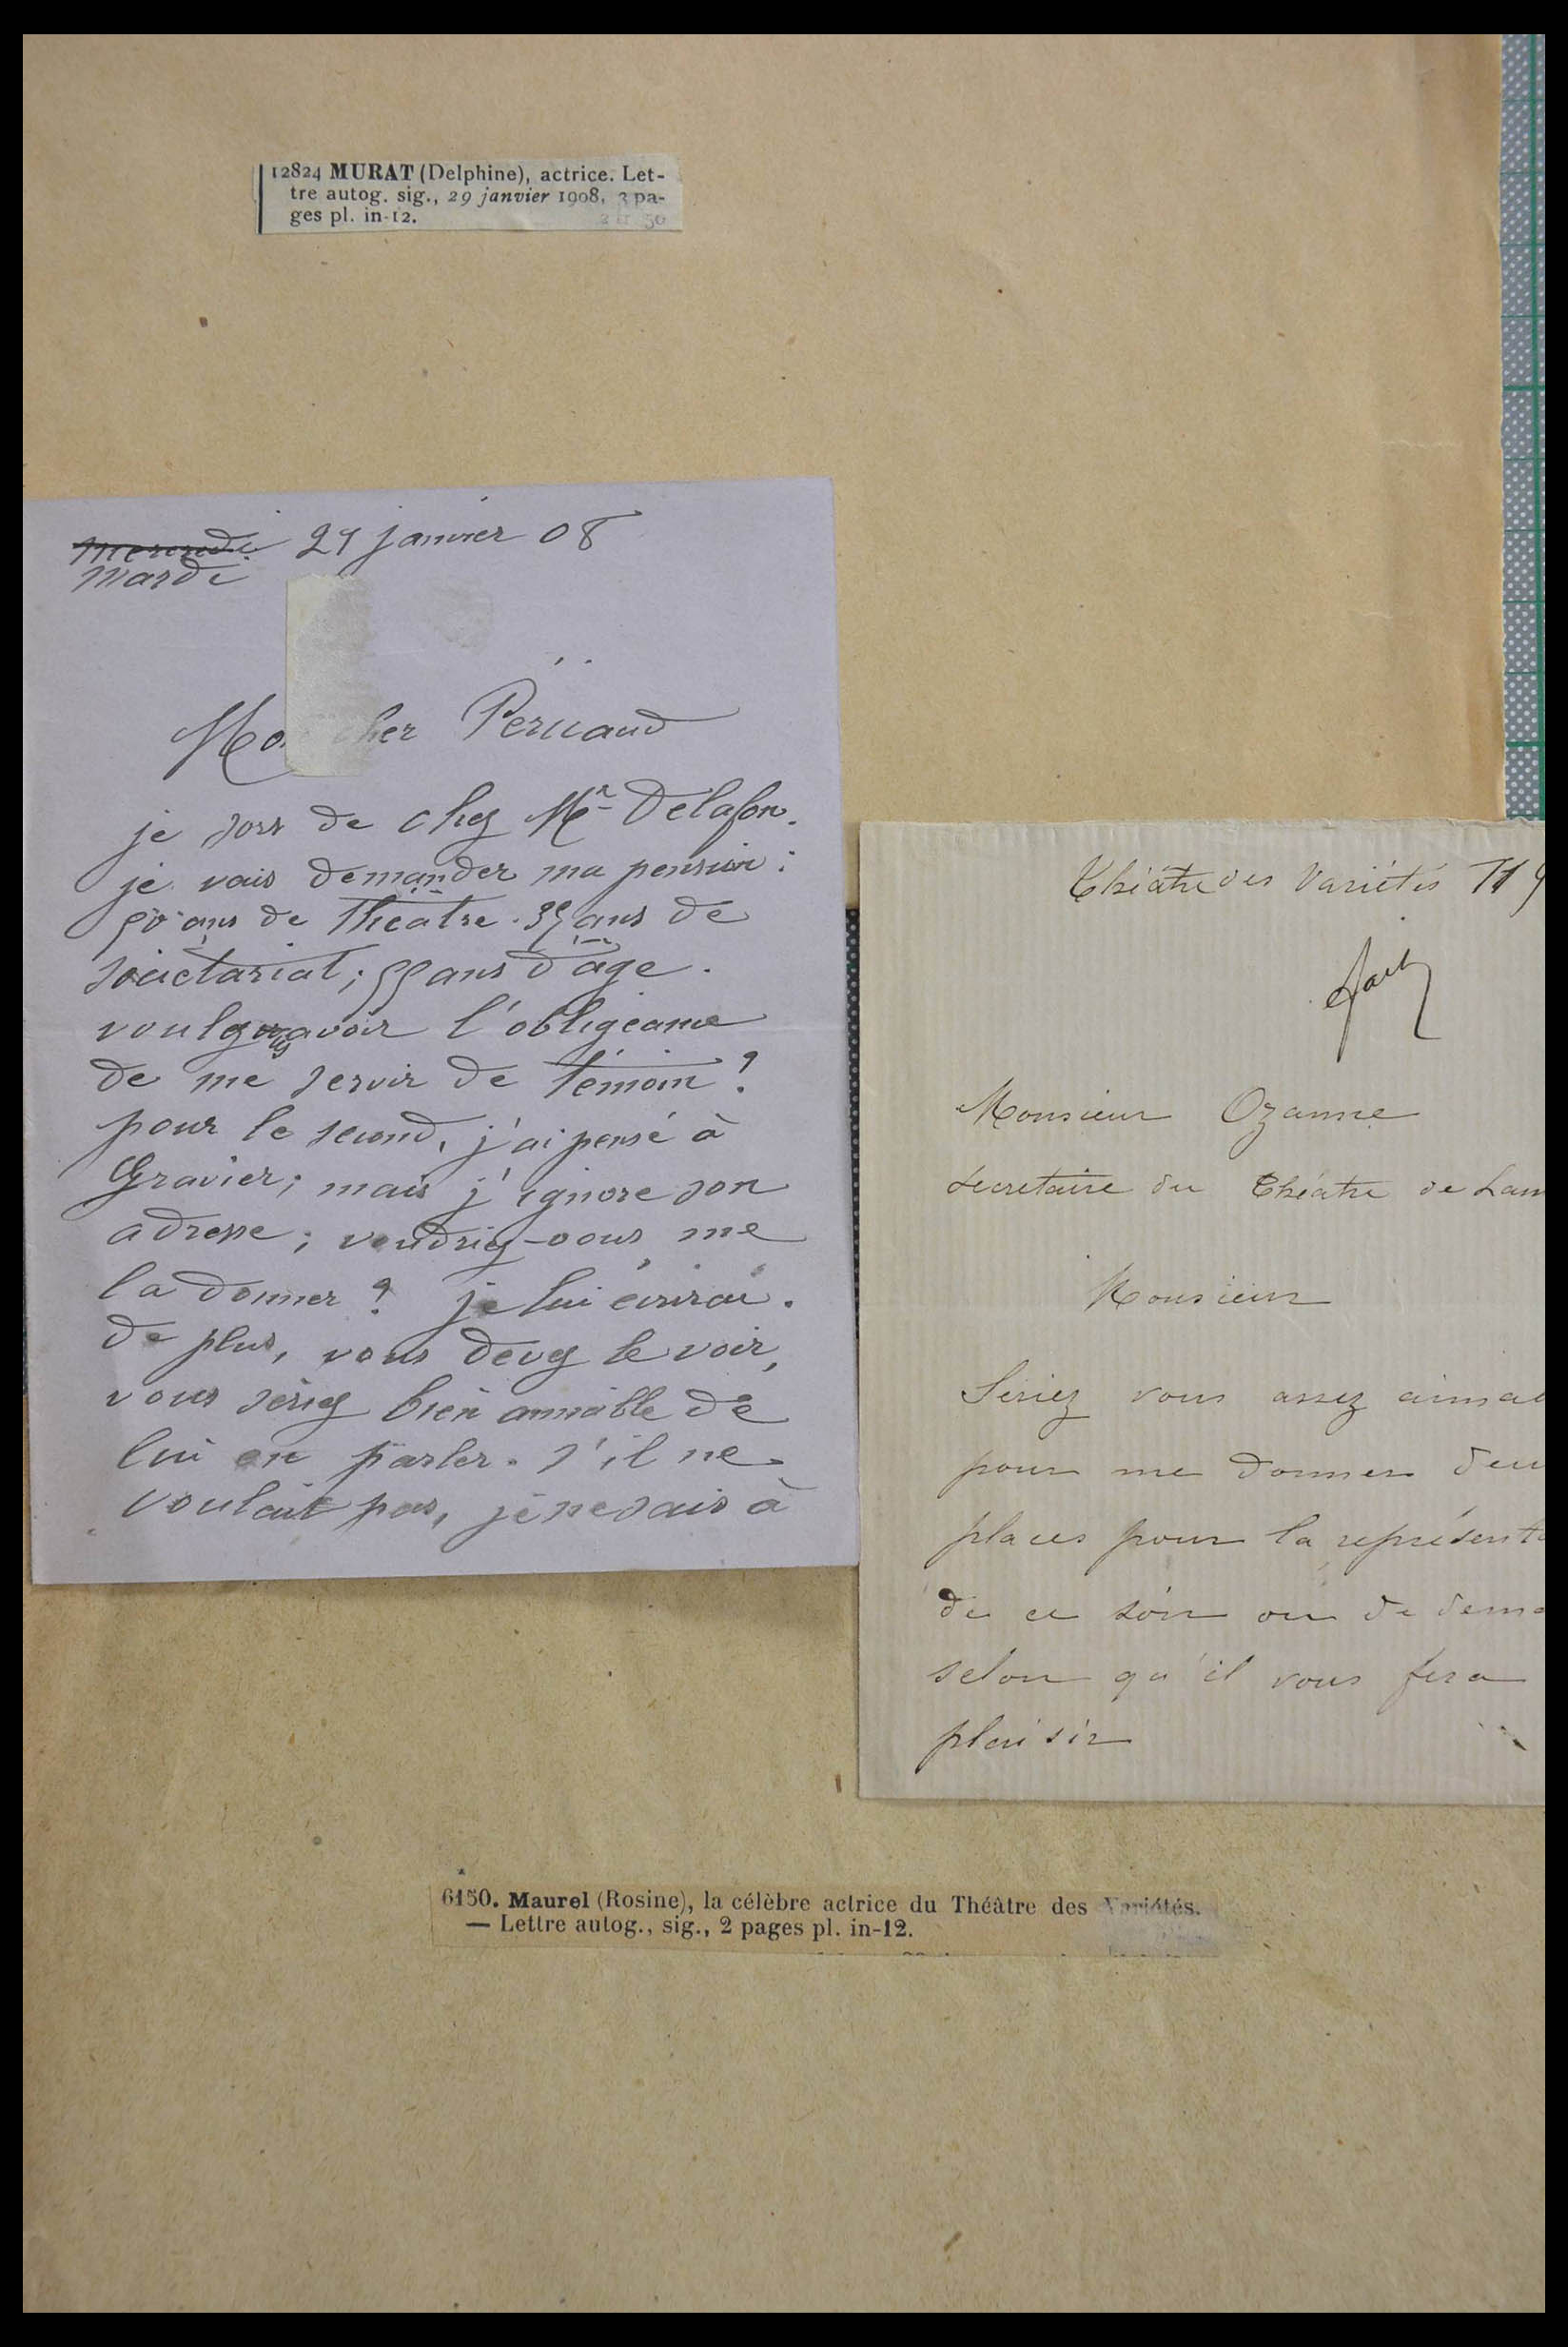 12824 MURAT (Delphine), actrice. Let-
tre autog. sig., 29 janvier 1908, 3 pa-
ges pl. in-12. 2 fr 50
mercredi 29 janvier 08
mardi
Mon cher Péricaud
je sors de chez Mr Delafon.
je vais demander ma pension :
50 ans de Théatre. 35 ans de
sociétariat ; 55 ans d'âge.
avoir l'obligeance
de me servir de témoin ?
pour le second, j'ai pensé à
Gravier ; mais j'ignore son
adresse ; voudriez-vous me
la donner ? je lui écrirai.
De plus, vous devez le voir,
vous seriez bien aimable de
lui en parler. s'il ne
voulait pas, je ne sais à
Théâtre des Variétés
Monsieur Ozanne
secretaire du Théatre de Lam
Monsieur
Seriez vous assez aimab
pour me donner deu
places pour la représenta
de ce soir ou de dema
selon qu'il vous fera
plaisir
6150. Maurel (Rosine), la célèbre actrice du Théâtre des Variétés.
— Lettre autog., sig., 2 pages pl. in-12.